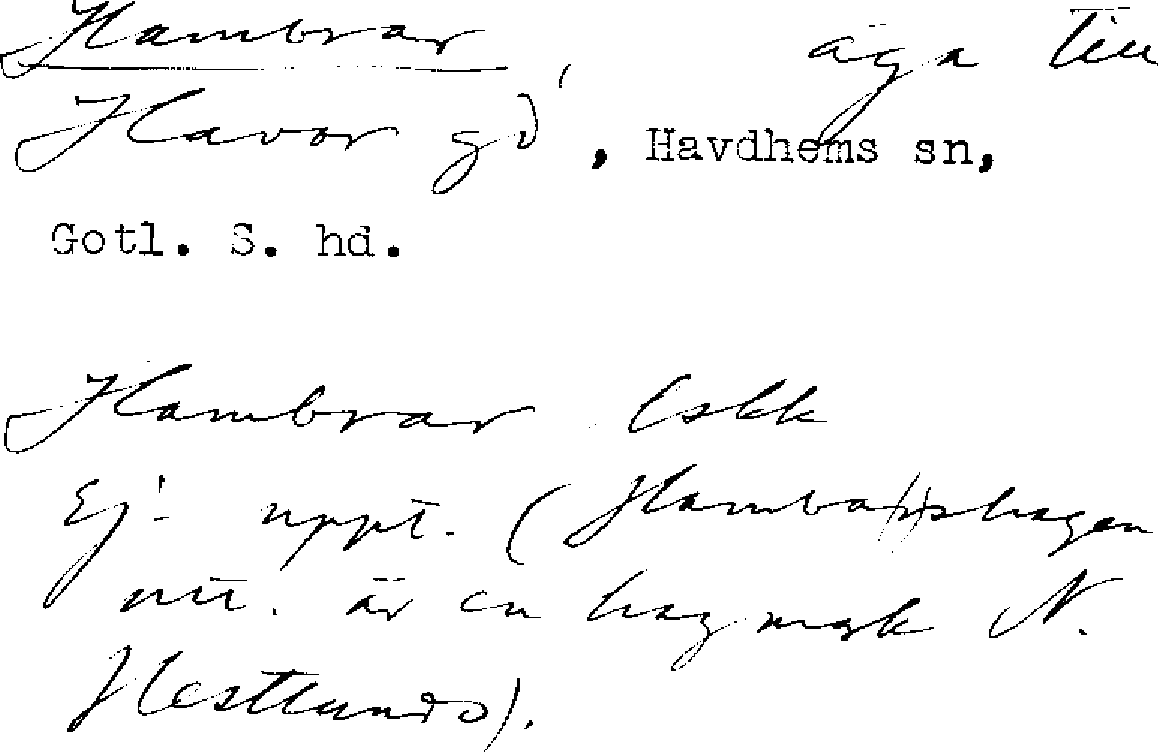 Hambrar, äga till
Havor gd, Havdhems sn,
Gotl. S. hd.
Hambrar lskk
Ej uppt. (Hamba(r)shagen
nu. är en hagmark N.
Hestlundo).